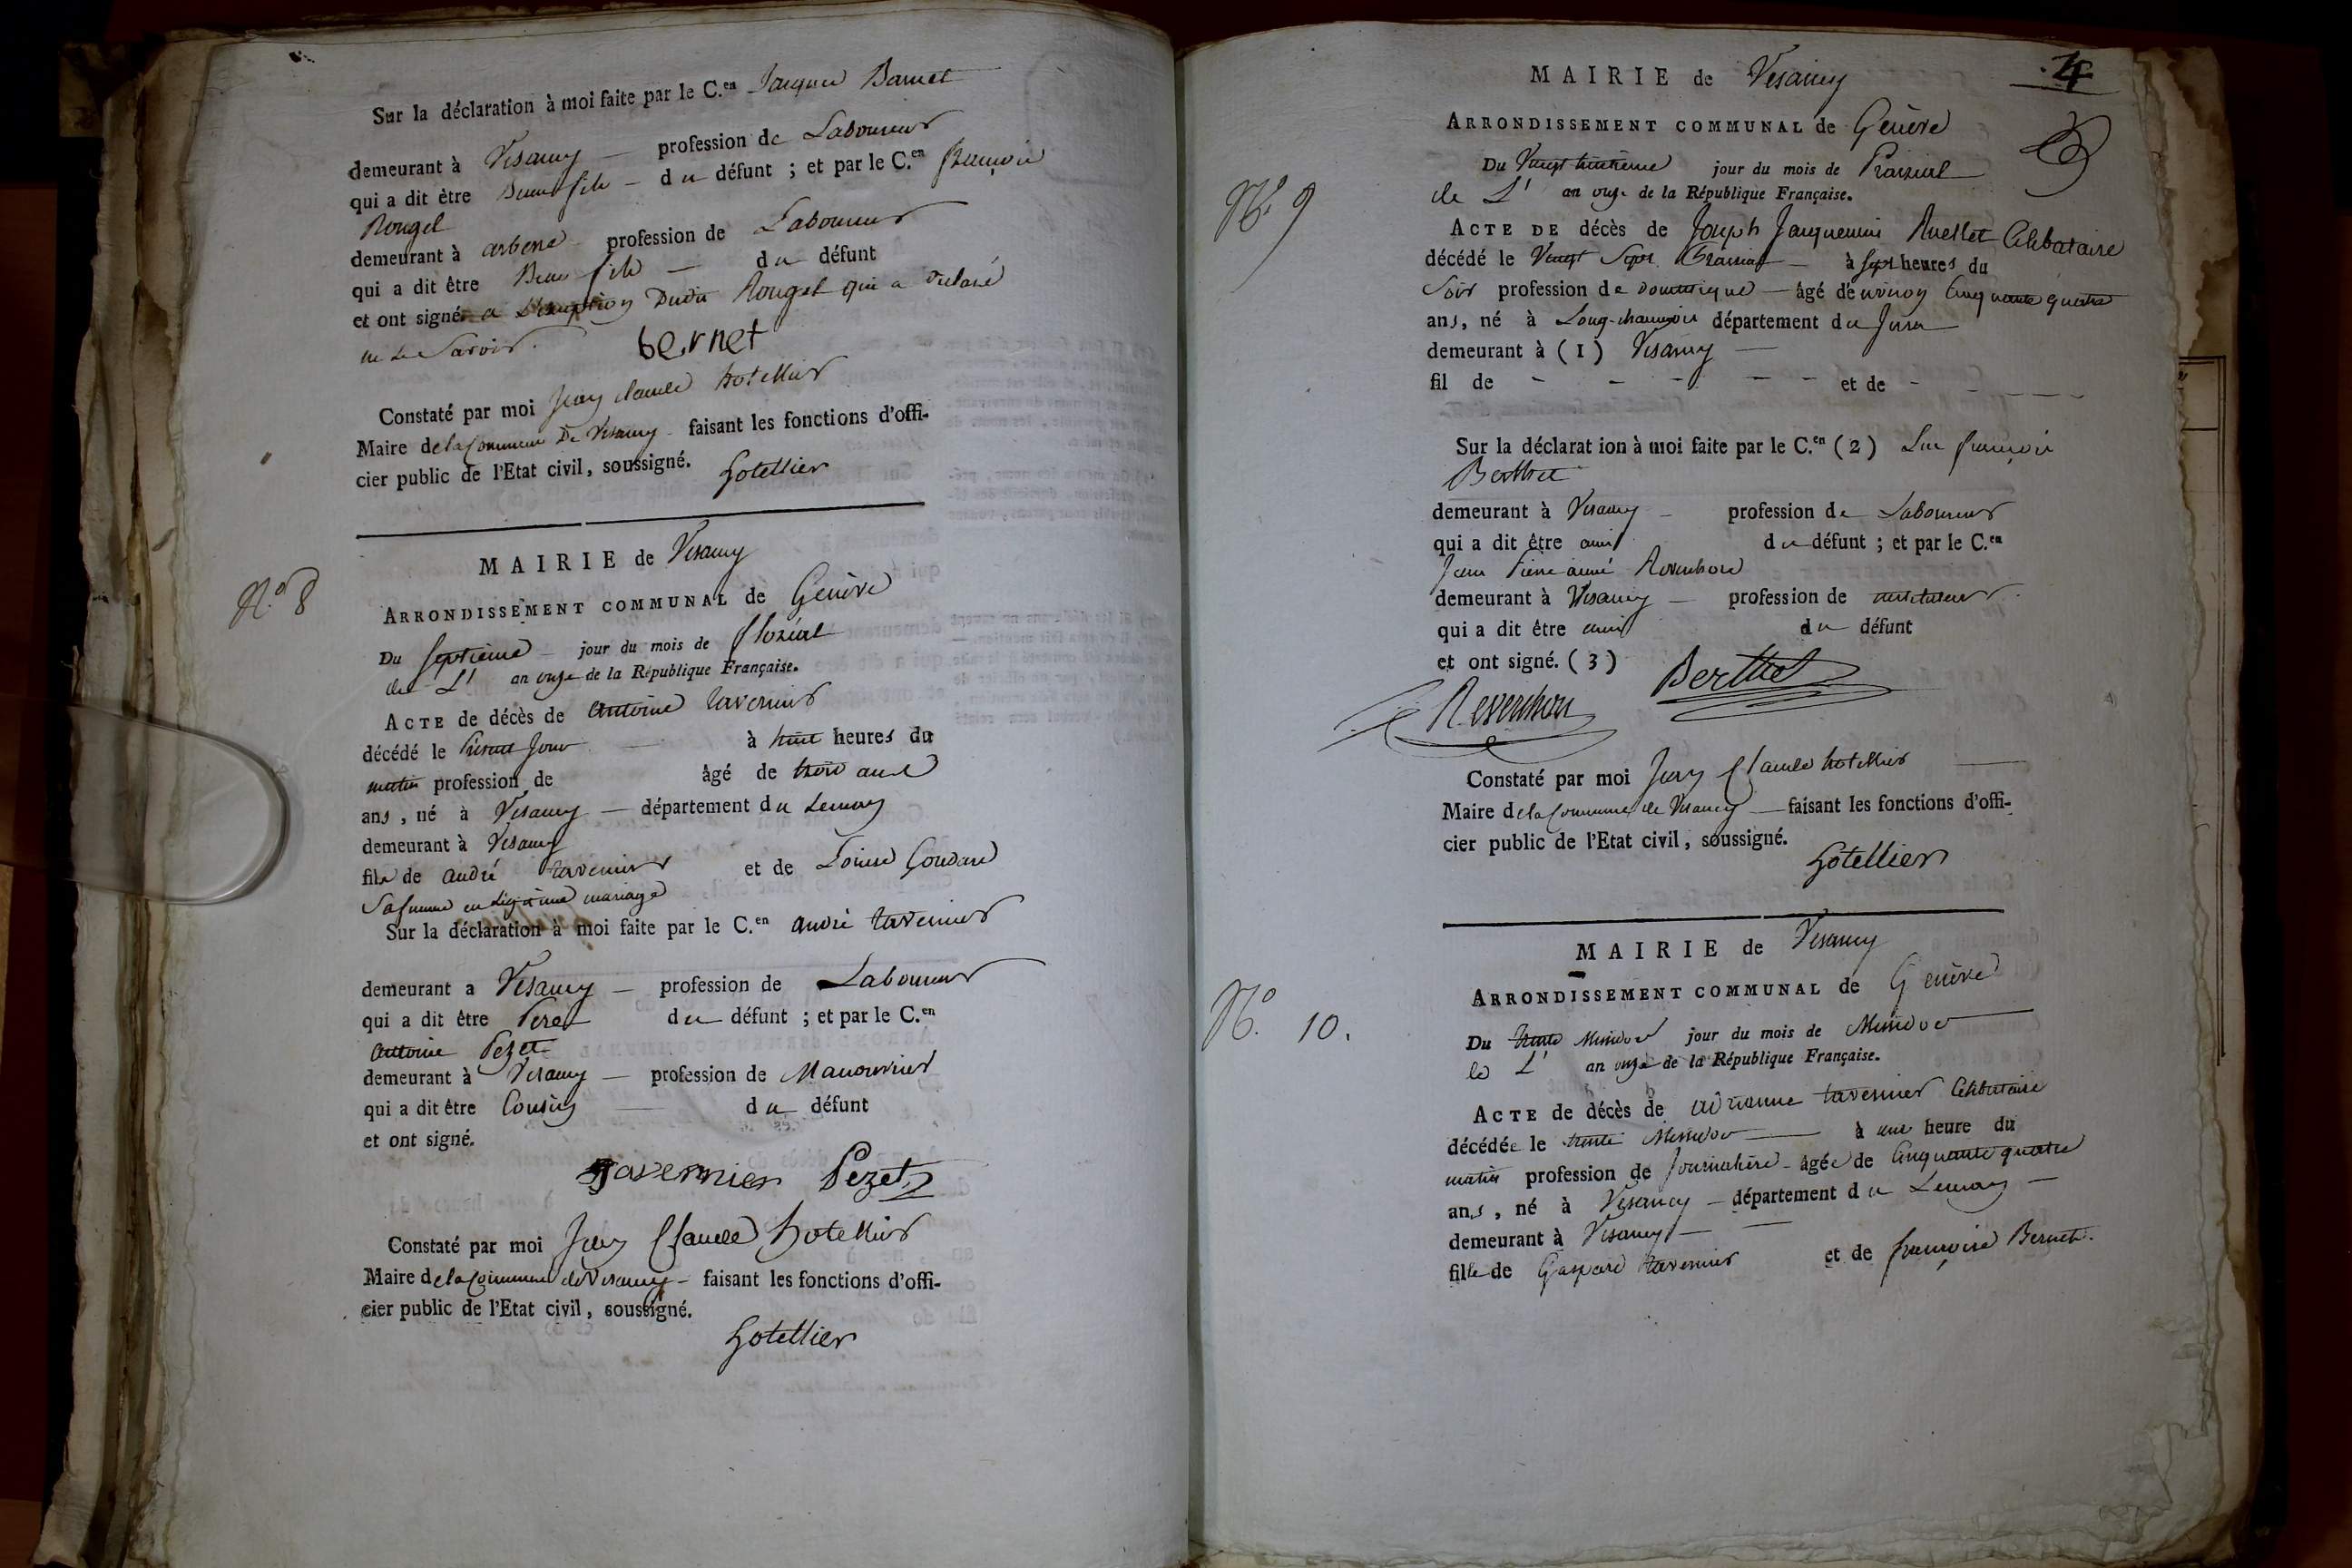 Sur la déclaration à moi faite par le C.en Jacques Barnet
demeurant à Vesancy profession de Laboureur
qui a dit être Beau fils du défunt ; et par le C.en François
Rouget
demeurant à profession de Laboureur
qui a dit être Beau fils du défunt
et ont signé a L'exception Dudit Rouget qui a Déclaré
ne Le Savoir.
bernet
Constaté par moi Jean claude hotellier
Maire de la Commune De Vesancy faisant les fonctions d'offi-
cier public de l'Etat civil, soussigné.
hotellier
MAIRIE de Vesancy
N.o 8
ARRONDISSEMENT COMMUNAL de Genève
Du septieme jour du mois de floréal
de L' an onze de la République Française.
ACTE de décès de Antoine tavernier
décédé le Présent Jour à huit heures du
matin profession de âgé de trois ans
ans, né à Vesancy département du Leman
demeurant à Vesancy
fils de andré tavernier et de Louise Goudard
Sa femme en Légitime mariage
Sur la déclaration à moi faite par le C.en andré tavernier
demeurant a Vesancy profession de Laboureur
qui a dit être Pere du défunt ; et par le C.en
antoine Pezet
demeurant à Vesancy profession de Manouvrier
qui a dit être Cousin du défunt
et ont signé.
tavernier Pezet
Constaté par moi Jean Claude hotellier
Maire de la Commune de Vesancy faisant les fonctions d'offi-
cier public de l'Etat civil, soussigné.
hotellier
4
MAIRIE de Vesancy
ARRONDISSEMENT COMMUNAL de Genève
N.o 9
Du Vingt huitieme jour du mois de Prairial
de L' an onze de la République Française.
ACTE DE décès de Joseph Jacquemin Ruellet Célibataire
décédé le Vingt Sept Prairial à sept heures du
Soir profession de domestique âgé d'environ Cinquante quatre
ans, né à Long-chaumois département du Jura
demeurant à (1) Vesancy
fil de - - - - - et de - - - - -
Sur la déclarat ion à moi faite par le C.en (2) Luc françois
Berthet
demeurant à Vesancy profession de Laboureur
qui a dit être ami du défunt ; et par le C.en
Jean Pierre aimé Reverchon
demeurant à Vesancy profession de instituteur.
qui a dit être ami du défunt
et ont signé. (3)
Reverchon Berthet
Constaté par moi Jean Claude hotellier
Maire de la Commune de Vesancy faisant les fonctions d'offi-
cier public de l'Etat civil, soussigné.
hotellier
MAIRIE de Vesancy
ARRONDISSEMENT COMMUNAL de Genève
N.o 10.
Du trente Messidor jour du mois de Messidor
de L' an onze de la République Française.
ACTE de décès de adrianne tavernier Célibataire
décédée le trente Messidor à une heure du
matin profession de Journalière âgée de Cinquante quatre
ans, né à Vesancy département du Leman
demeurant à Vesancy
fille de Gaspard tavernier et de françoise Bernet.